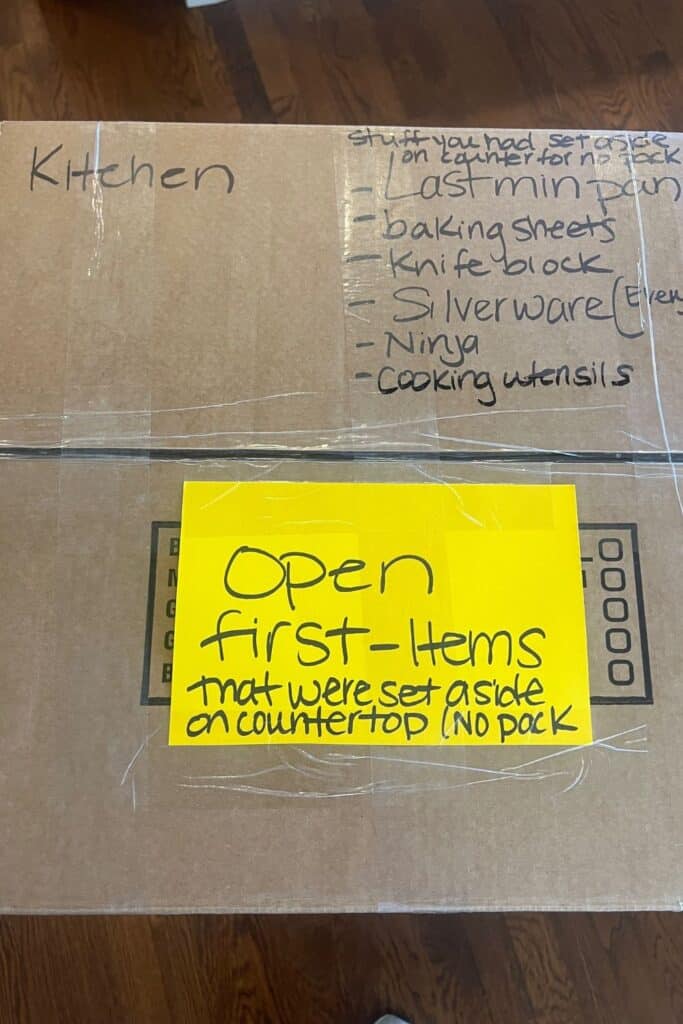 Kitchen
stuff you had set aside
on counter for no pack
- Last min pan
- baking sheets
- Knife block
- Silverware (Every
- Ninja
- Cooking utensils
Open
first - Items
that were set aside
on countertop (NO pack